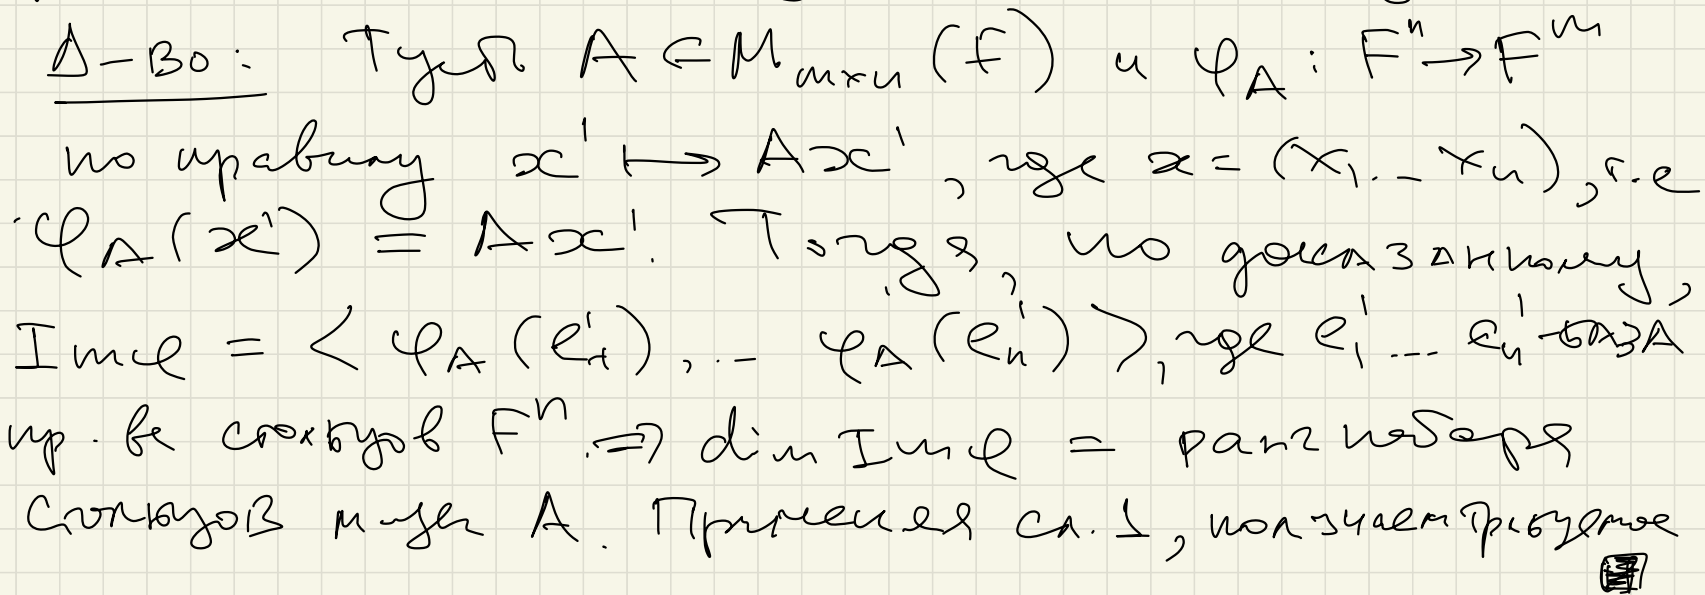 Δ-во: Пусть A ∈ M_{m×n}(F) и φ_A : F^n → F^m
по правилу x' ↦ Ax', где x = (x_1 ... x_n), т.е
φ_A(x') = Ax'. Тогда, по доказанному,
Im φ = < φ_A(e'_1), ... φ_A(e'_n) >, где e'_1 ... e'_n - база
пр-ва столбцов F^n. ⇒ dim Im φ = ранг набора
столбцов м-цы A. Применяя сл. 1, получаем требуемое